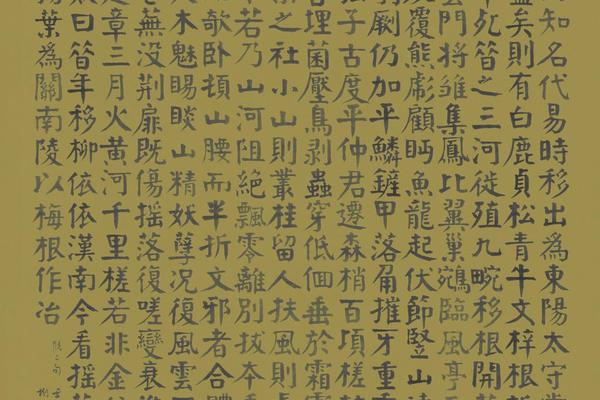 知名代易時移出為東陽太守
矣則有白鹿貞松青牛文梓根
死簪之三河徙殖九畹移根開
門將雏集鳳比翼巢鵷臨風亭
覆熊彪顧眄魚龍起伏節豎山
劂仍加平鱗鏟甲落角摧牙重
子古度平仲君遷森梢百頃槎
埋菌壓鳥剝蟲穿低佪垂於霜
之社小山則叢桂留人扶風則
若乃山河阻絕飄零離別拔本
欹臥頓山腰而半折文邪者合
木魅睗睒山精妖孽況復風雲
蕪沒荊扉既傷搖落復嗟變衰
章三月火黃河千里槎若非金
曰昝年移柳依依漢南今看搖
葉為關南陵以梅根作冶